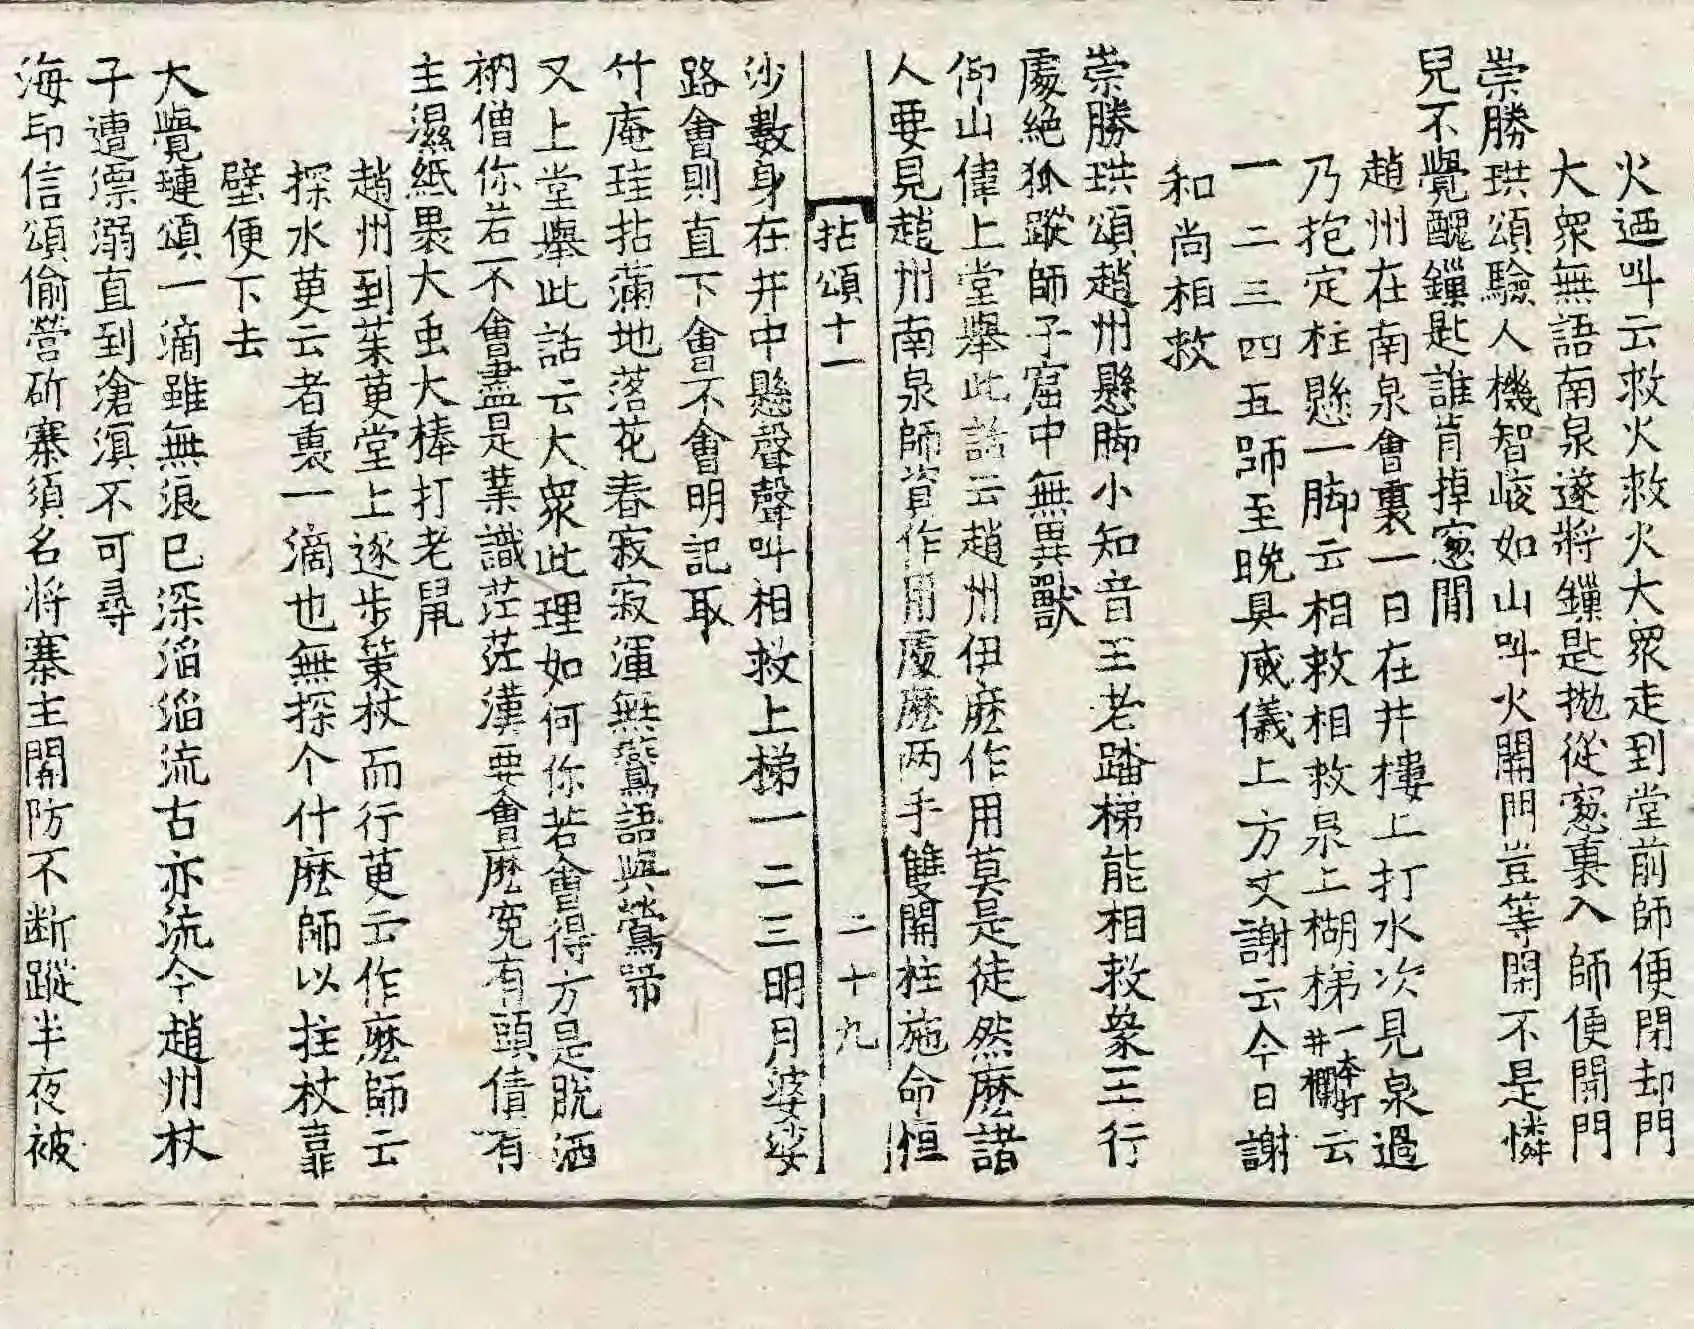 火迺叫云救火救火大衆走到堂前師便閉却門
大衆無語南泉遂將鏁匙抛從窓裏入師便開門
崇勝珙頌驗人機智峻如山叫火開門豈等閑不是憐
兒不覺醜鏁匙誰肯掉窓間
趙州在南泉會裏一日在井樓上打水次見泉過
乃抱定柱懸一脚云相救相救泉上楜梯一本打井欄云
一二三四五師至晩具威儀上方丈謝云今日謝
和尚相救
崇勝珙頌趙州懸脚小知音王老踏梯能相救象王行
處絶狐蹤師子窟中無異獸
仰山偉上堂舉此話云趙州伊麽作用莫是徒然麽諸
人要見趙州南泉師資作用處麽两手雙開柱施命恒
拈頌十一　二十九
沙數身在井中懸聲聲叫相救上梯一二三明月婆娑
路會則直下會不會明記取
竹庵珪拈滿地落花春寂寂渾無鷰語與鶯啼
又上堂舉此話云大衆此理如何你若會得方是脫洒
衲僧你若不會盡是業識茫茫漢要會麽寃有頭債有
主濕紙裹大虫大棒打老鼠
趙州到茱萸堂上逐步策杖而行萸云作麽師云
探水萸云者裏一滴也無探个什麽師以拄杖靠
壁便下去
大覺璉頌一滴雖無浪已深滔滔流古亦流今趙州杖
子遭漂溺直到滄溟不可尋
海印信頌偷營斫寨須名将寨主開防不断蹤半夜被